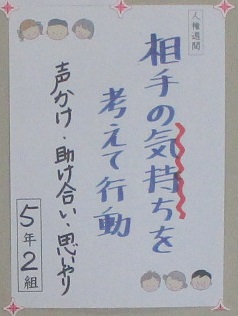 人権週間
相手の気持ちを
考えて行動
声かけ・助け合い・思いやり
5年2組